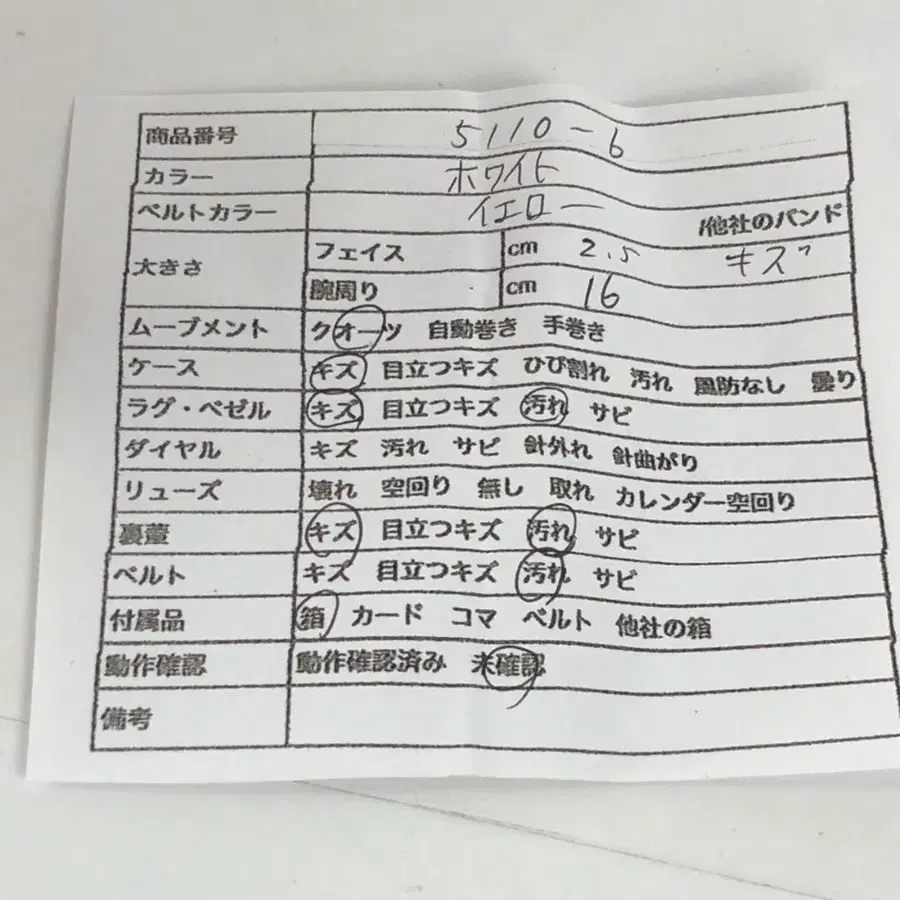 商品番号 5110-6
カラー ホワイト
ベルトカラー イエロー /他社のバンド
大きさ フェイス cm 2.5 キズ
腕周り cm 16
ムーブメント クオーツ 自動巻き 手巻き
ケース キズ 目立つキズ ひび割れ 汚れ 風防なし 曇り
ラグ・ベゼル キズ 目立つキズ 汚れ サビ
ダイヤル キズ 汚れ サビ 針外れ 針曲がり
リューズ 壊れ 空回り 無し 取れ カレンダー空回り
裏蓋 キズ 目立つキズ 汚れ サビ
ベルト キズ 目立つキズ 汚れ サビ
付属品 箱 カード コマ ベルト 他社の箱
動作確認 動作確認済み 未確認
備考